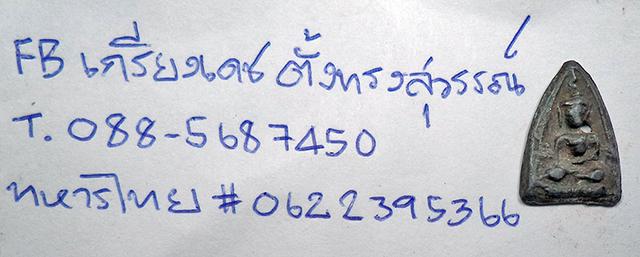 FB เกรียงเดช ตั้งทรงสุวรรณ์
T. 088-5687450
ทหารไทย # 0622395366